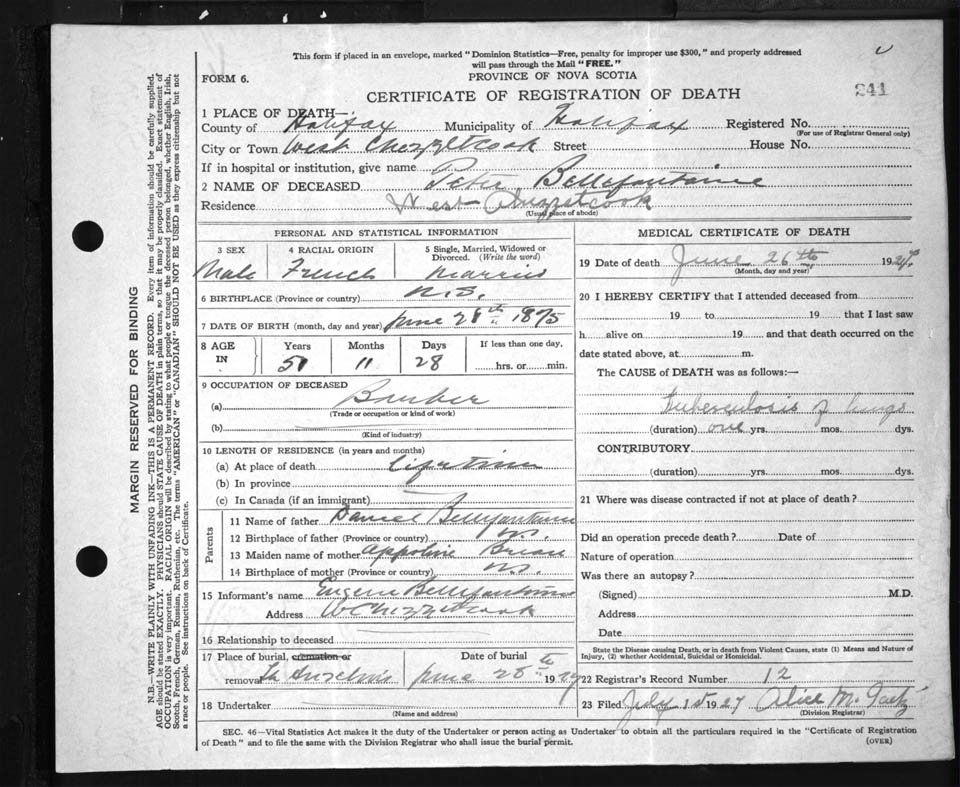 This form if placed in an envelope, marked "Dominion Statistics—Free, penalty for improper use $300," and properly addressed
will pass through the Mail "FREE."
FORM 6.
PROVINCE OF NOVA SCOTIA
CERTIFICATE OF REGISTRATION OF DEATH
241
1 PLACE OF DEATH—
County of Halifax Municipality of Halifax Registered No.
(For use of Registrar General only)
City or Town West Chezzetcook Street House No.
If in hospital or institution, give name
2 NAME OF DECEASED Peter Bellefontaine
Residence West Chezzetcook
(Usual place of abode)
PERSONAL AND STATISTICAL INFORMATION
3 SEX 4 RACIAL ORIGIN 5 Single, Married, Widowed or Divorced. (Write the word)
Male French Married
6 BIRTHPLACE (Province or country) N.S.
7 DATE OF BIRTH (month, day and year) June 28th 1875
8 AGE IN Years Months Days If less than one day,
51 11 28 hrs. or min.
9 OCCUPATION OF DECEASED
(a)
(Trade or occupation or kind of work)
(b)
(Kind of industry)
10 LENGTH OF RESIDENCE (in years and months)
(a) At place of death lifetime
(b) In province
(c) In Canada (if an immigrant)
Parents
11 Name of father Daniel Bellefontaine
12 Birthplace of father (Province or country) N.S.
13 Maiden name of mother Appoline
14 Birthplace of mother (Province or country) N.S.
15 Informant's name Eugene Bellefontaine
Address W Chezzetcook
16 Relationship to deceased
17 Place of burial, cremation or removal St Anselm's Date of burial June 28th 1927
18 Undertaker
(Name and address)
MEDICAL CERTIFICATE OF DEATH
19 Date of death June 26th 1927
(Month, day and year)
20 I HEREBY CERTIFY that I attended deceased from
19 to 19 that I last saw
h alive on 19 and that death occurred on the
date stated above, at m.
The CAUSE of DEATH was as follows:—
Tuberculosis of lungs
(duration) one yrs. mos. dys.
CONTRIBUTORY.
(duration) yrs. mos. dys.
21 Where was disease contracted if not at place of death?
Did an operation precede death? Date of
Nature of operation
Was there an autopsy?
(Signed) M.D.
Address
Date
State the Disease causing Death, or in death from Violent Causes, state (1) Means and Nature of
Injury, (2) whether Accidental, Suicidal or Homicidal.
22 Registrar's Record Number 12
23 Filed July 1st 1927 Alice M.
(Division Registrar)
SEC. 46—Vital Statistics Act makes it the duty of the Undertaker or person acting as Undertaker to obtain all the particulars required in the "Certificate of Registration
of Death" and to file the same with the Division Registrar who shall issue the burial permit.
(OVER)
MARGIN RESERVED FOR BINDING
N.B.—WRITE PLAINLY WITH UNFADING INK—THIS IS A PERMANENT RECORD. Every item of information should be carefully supplied.
AGE should be stated EXACTLY. PHYSICIANS should STATE CAUSE OF DEATH in plain terms, so that it may be properly classified. Exact statement of
OCCUPATION is very important. RACIAL ORIGIN will be described by stating to what people or tongue the deceased person belonged, whether English, Irish,
Scotch, French, German, Russian, Ruthenian, etc. The terms "AMERICAN" or "CANADIAN" SHOULD NOT BE USED as they express citizenship but not
a race or people. See instructions on back of Certificate.